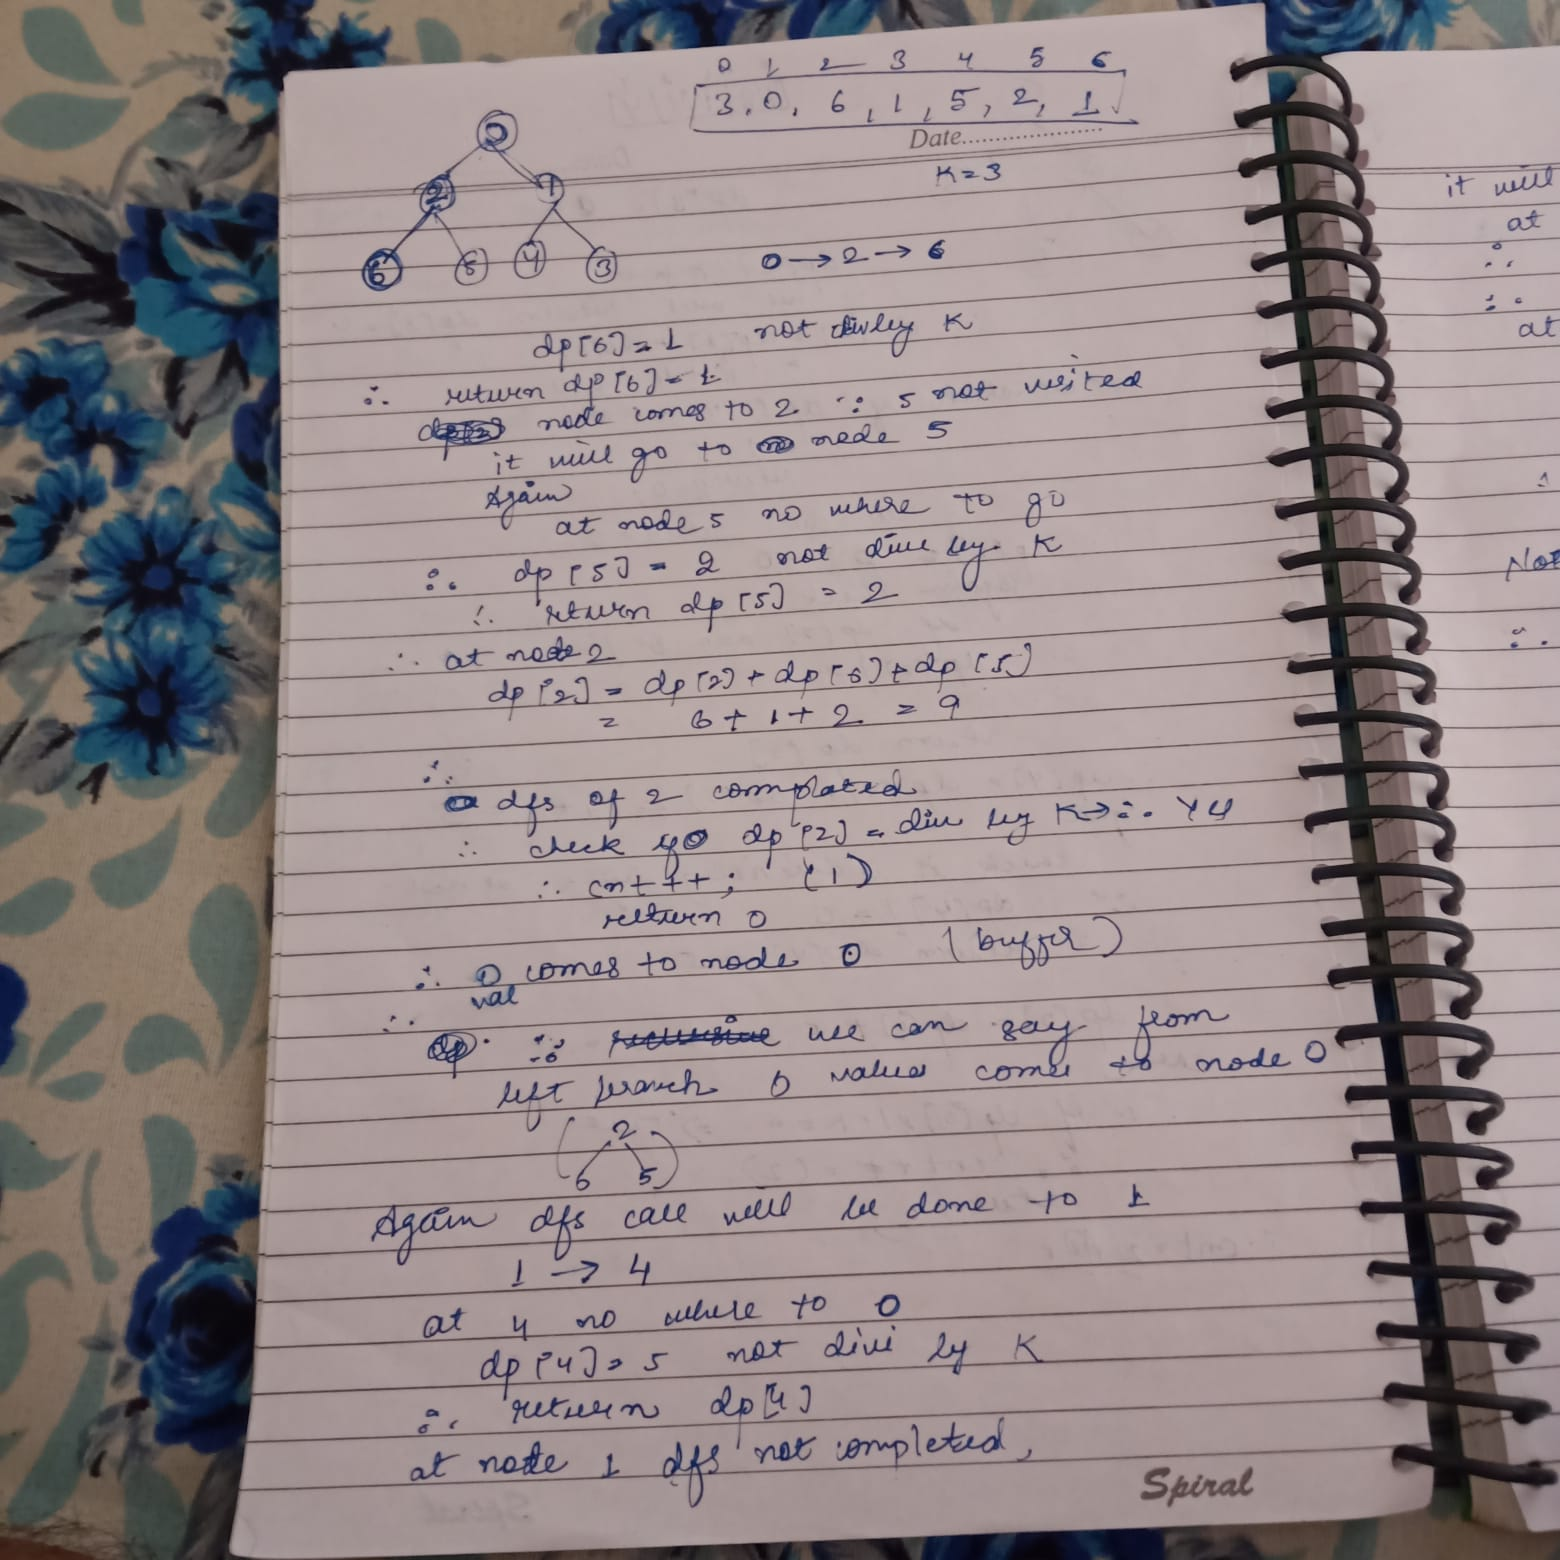 0 1 2 3 4 5 6
3, 0, 6, 1, 5, 2, 1
Date....................
K=3
0
2 1
6 5 4 3
0 → 2 → 6
dp[6] = 1 not div by K
∴ return dp[6] = 1
node comes to 2 ∵ 5 not visited
it will go to node 5
Again
at node 5 no where to go
∴ dp[5] = 2 not div by K
∴ return dp[5] = 2
∴ at node 2
dp[2] = dp[2] + dp[6] + dp[5]
= 6 + 1 + 2 = 9
∴
dfs of 2 completed
∴ check dp[2] = div by K → ∴
∴ cnt++; (1)
return 0
∴ 0 comes to node 0 (buffer)
val
∴
∵ we can say from
left branch 0 value comes to node 0
( 2 )
6 5
Again dfs call will be done to 1
1 → 4
at 4 no where to 0
dp[4] = 5 not divi by K
∴ return dp[4]
at node 1 dfs not completed,
Spiral
it will
at
∴
∴
at
Not
∴